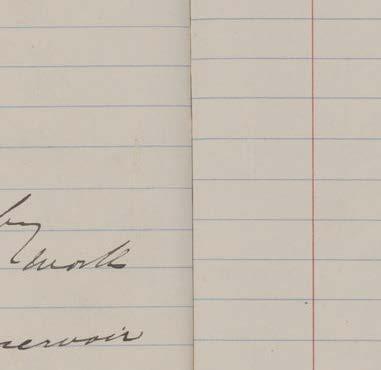 by
work
servoir